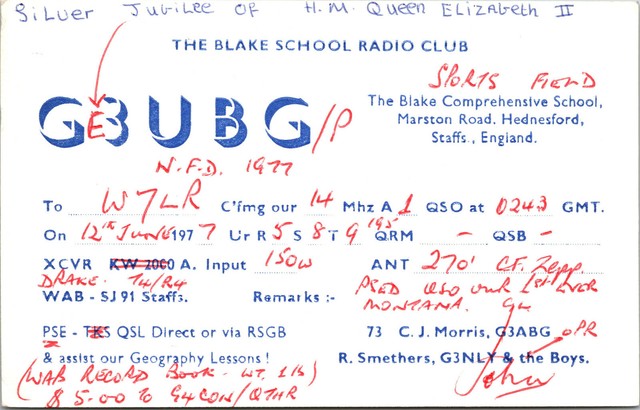 Silver Jubilee of H.M. Queen Elizabeth II
THE BLAKE SCHOOL RADIO CLUB
GE3UBG/P
SPORTS FIELD
The Blake Comprehensive School,
Marston Road, Hednesford,
Staffs., England.
N.F.D. 1977
To W7LR C'fmg our 14 Mhz A1 QSO at 0243 GMT.
On 12th JUNE 1977 Ur R 5 S 8 T 9 195 QRM - QSB -
XCVR KW 2000 A. Input 150W ANT 270' C.F. Zepp
DRAKE T4/R4
WAB - SJ 91 Staffs. Remarks :- PSED QSO our 1st EVER
MONTANA.
PSE - TKS QSL Direct or via RSGB 73 C. J. Morris, G3ABG OPR
& assist our Geography Lessons ! R. Smethers, G3NLY & the Boys.
(WAB RECORD BOOK - WT. 1 lb) John
$ 5.00 to G4CON/QTHR